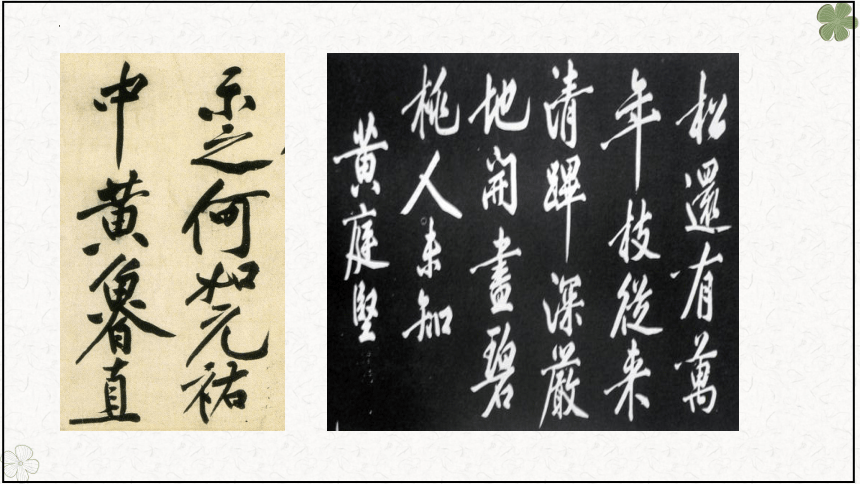 示之何如元祐
中黄魯直
松還有萬
年枝從来
清蹕深嚴
地開盡碧
桃人未知
黄庭堅